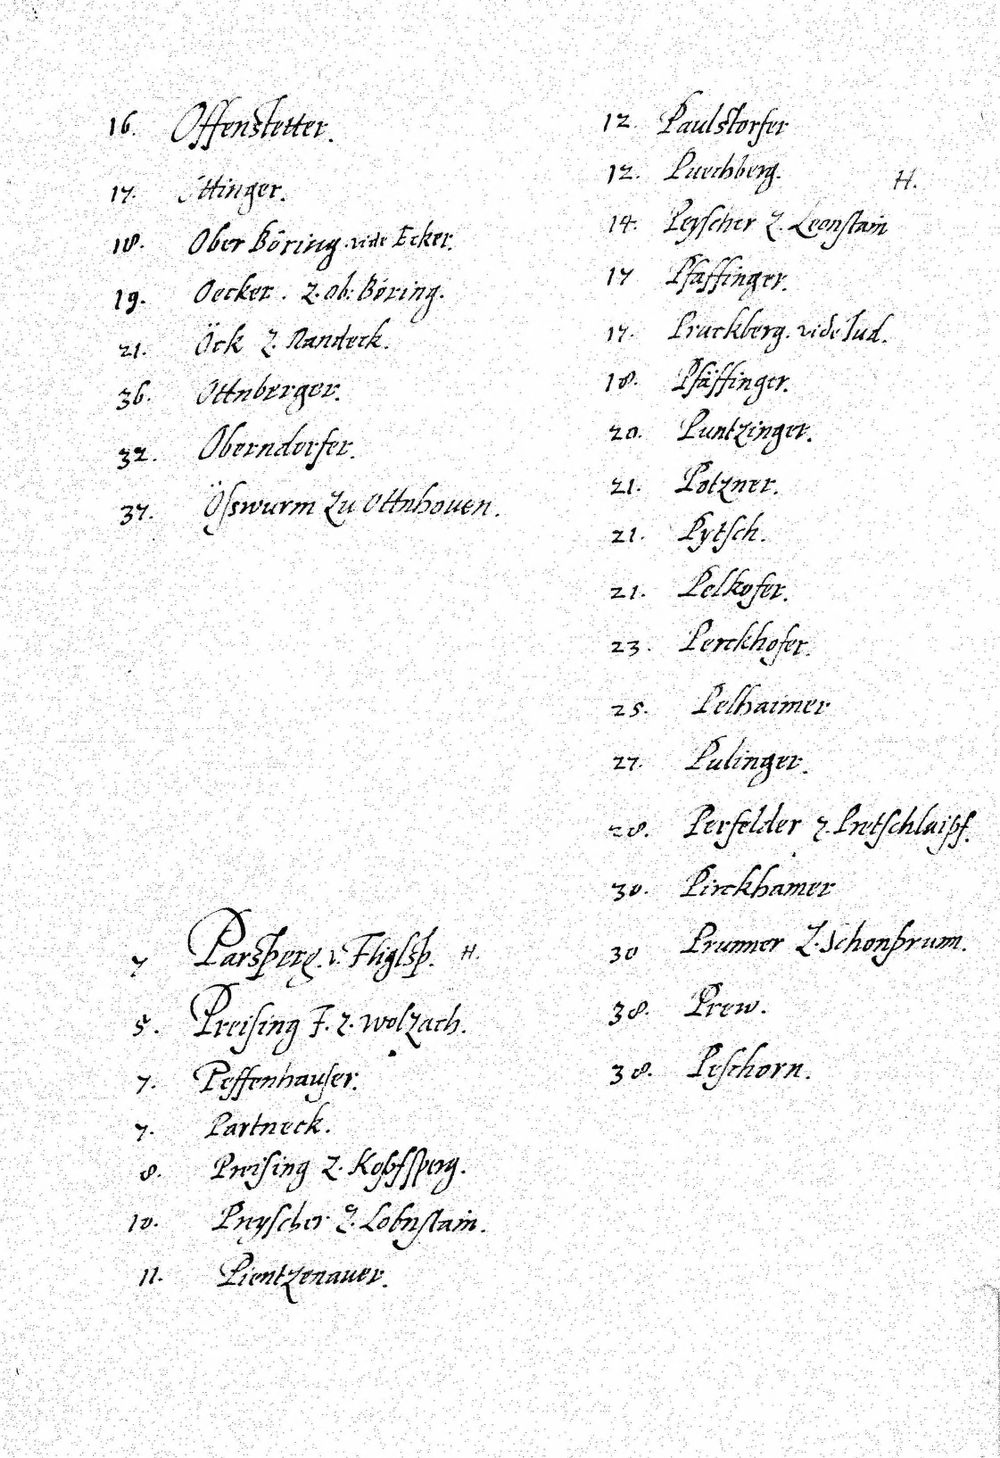 16. Offenstetter.
17. Öttinger.
18. Ober Böring. vide Ecker.
19. Oecker. Z. ob: Böring.
21. Öck Z. Randeck.
36. Ottnberger.
32. Oberndorfer.
37. Össwurm Zu Ottnhouen.
7 Parsperg. v. Fliglsp. H.
5. Preising F. z. Wolzach.
7. Peffenhauser.
7. Partneck.
8. Preising Z. Kopfsperg.
10. Preyscher Z. Lobnstain.
11. Pientzenauer.
12. Paulstorfer
12. Puechberg. H.
14. Peyscher Z. Leonstain
17 Pfaffinger.
17. Pruckberg. vide Jud.
18. Pfäffinger.
20. Puntzinger.
21. Potzner.
21. Pytsch.
21. Pelkofer.
23. Perckhofer.
25. Pelhaimer
27. Pulinger.
28. Perfelder z. Pretschlaipf.
30. Pirckhamer
30 Prunner Z. Schonprunn.
38. Prew.
38. Peschorn.